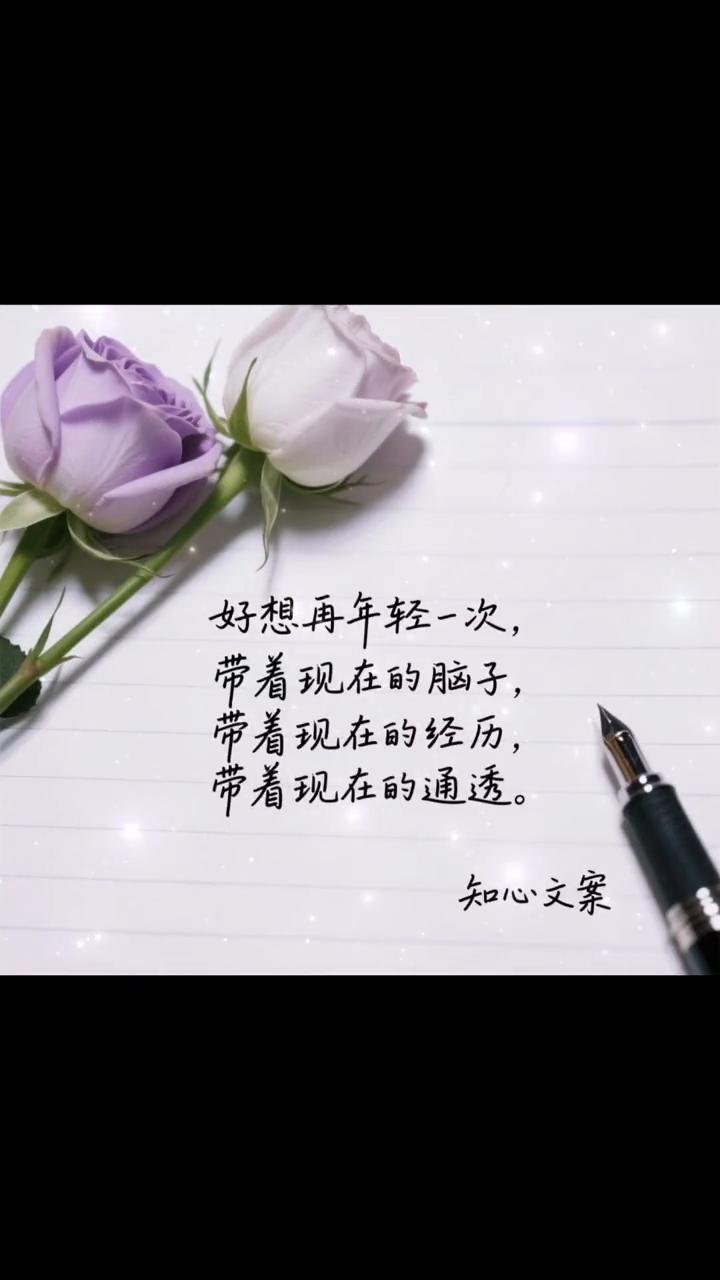 好想再年轻一次，
带着现在的脑子，
带着现在的经历，
带着现在的通透。
知心文案